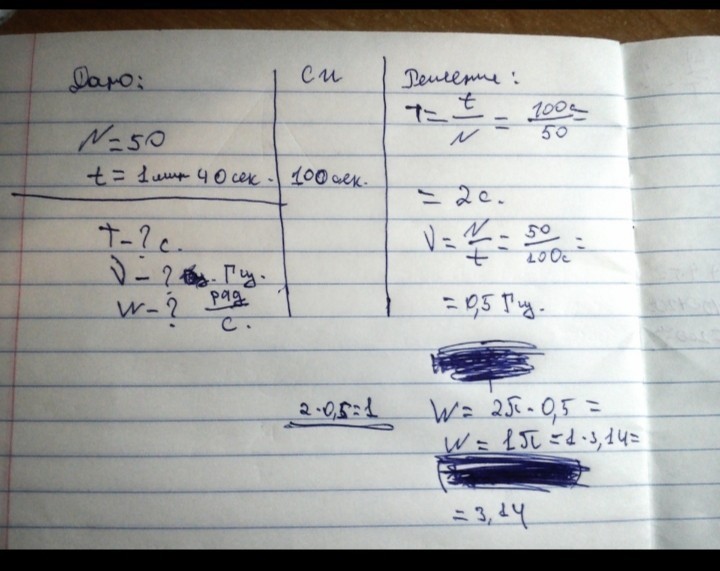 Дано:
N=50
t = 1мин 40сек.
T-? с.
ν-? Гц.
W-? рад/с.
СИ
100сек.
2·0,5=1
Решение:
T= t/N = 100с/50 =
= 2с.
ν= N/t = 50/100с =
=0,5 Гц.
W= 2π·0,5 =
W= 1π=1·3,14=
=3,14